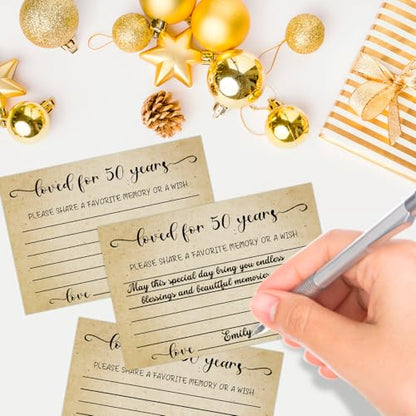 loved for 50 years
PLEASE SHARE A FAVORITE MEMORY OR A WISH
love
loved for 50 years
PLEASE SHARE A FAVORITE MEMORY OR A WISH
May this special day bring you endless
blessings and beautiful memories
Emily
love
50 years
PLEASE SHARE A FAVORITE MEMORY OR A WISH